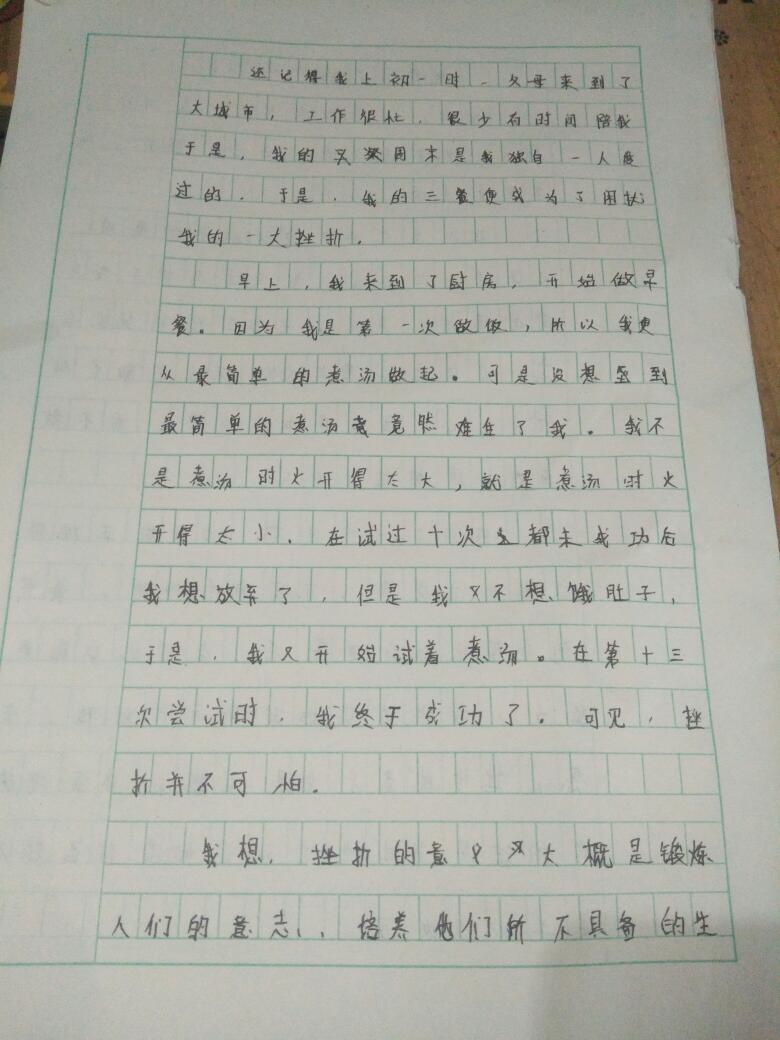 还记得我上初一时，父母来到了
大城市，工作很忙，很少有时间陪我
于是，我的周末是我独自一人度
过的，于是，我的三餐便成为了困扰
我的一大挫折。
早上，我来到了厨房，开始做早
餐。因为我是第一次做做，所以我便
从最简单的煮汤做起。可是没想到
最简单的煮汤竟然难住了我。我不
是煮汤时火开得太大，就是煮汤时火
开得太小，在试过十次都未成功后
我想放弃了，但是我又不想饿肚子，
于是，我又开始试着煮汤。在第十三
次尝试时，我终于成功了。可见，挫
折并不可怕。
我想，挫折的意义大概是锻炼
人们的意志，培养他们所不具备的生